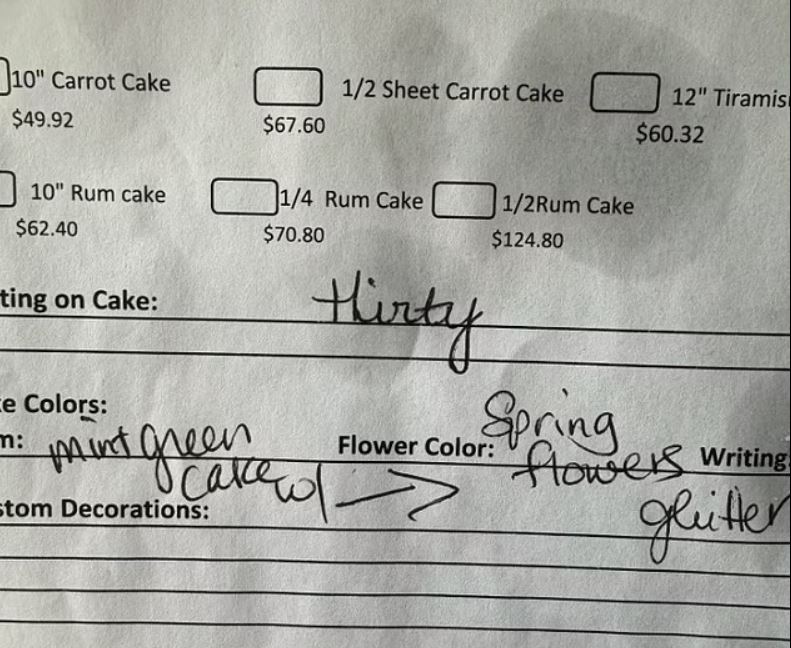 10" Carrot Cake 1/2 Sheet Carrot Cake 12" Tiramis
$49.92 $67.60 $60.32
10" Rum cake 1/4 Rum Cake 1/2Rum Cake
$62.40 $70.80 $124.80
ting on Cake: thirty
e Colors:
m: mint green Flower Color: Spring flowers Writing
cake w/ → glitter
stom Decorations: